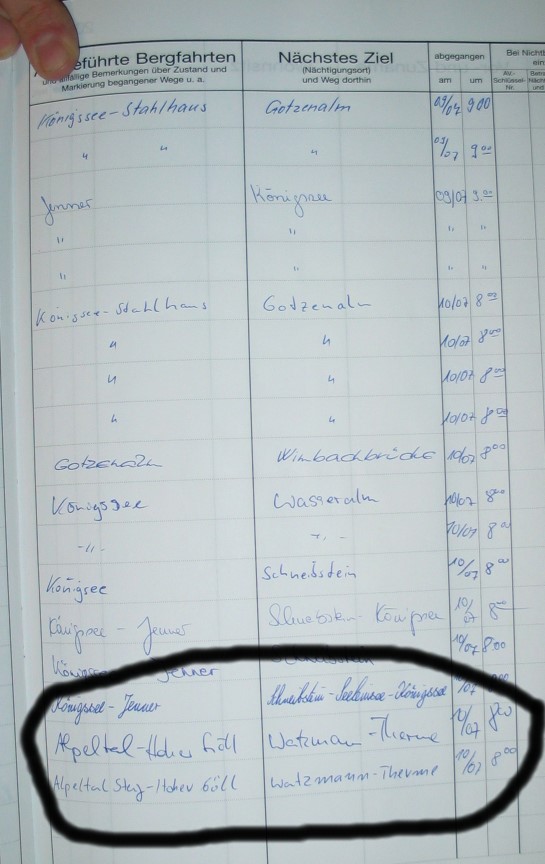 geführte Bergfahrten Nächstes Ziel abgegangen Bei Nicht
und allfällige Bemerkungen über Zustand und (Nächtigungsort)
Markierung begangener Wege u. a. und Weg dorthin am um AV-Schlüssel-Nr.
Königssee-Stahlhaus Gotzenalm 09/07 9 00
" " " 09/07 9 00
Jenner Königssee 09/07 9.00
" " " "
" " " "
Königssee-Stahlhaus Gotzenalm 10/07 8 00
" " 10/07 8 00
" " 10/07 8 00
" " 10/07 8 00
Gotzenalm Wimbachbrücke 10/07 8 00
Königssee Wasseralm 10/07 8 00
-"- -"- 10/07 8 00
Königsee Schneibstein 10/07 8 00
Königsee - Jenner Schneibstein - Königsee 10/07 8 00
Jenner 10/07 8:00
Königssee - Jenner Schneibstein - Seeleinsee - Königssee /07 00
Alpeltal - Hoher Göll Watzmann - Therme 10/07 8 00
Alpeltal Steig - Hoher Göll Watzmann - Therme 10/07 8 00